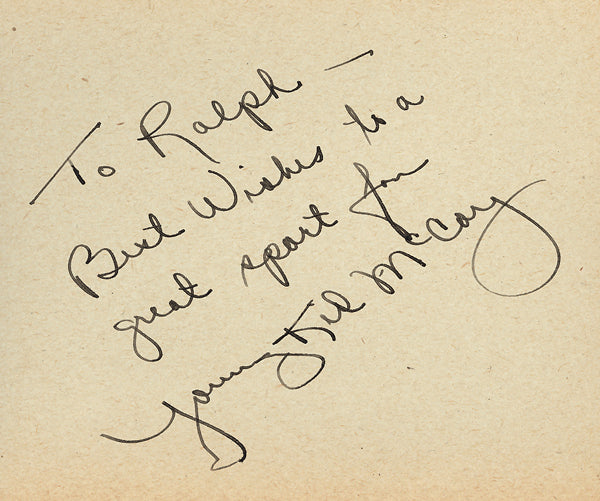 To Ralph —
Best Wishes to a
great sport fan
Young Kid McCoy